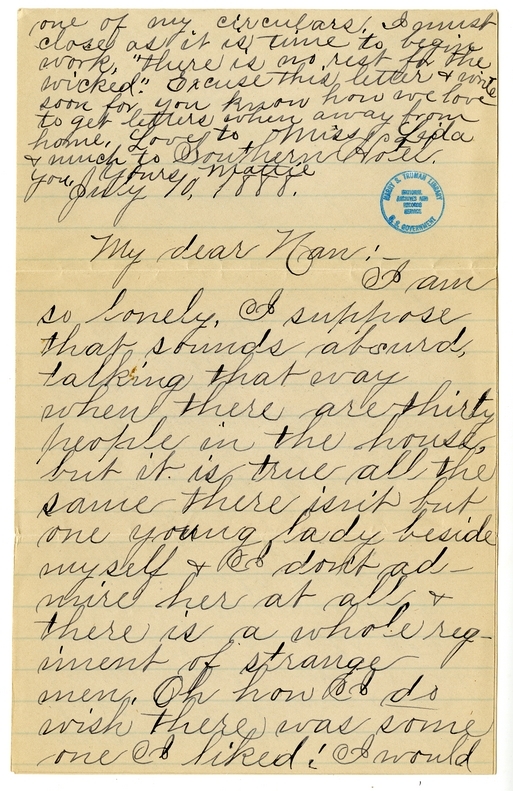 one of my circulars. I must
close as it is time to begin
work, "there is no rest for the
wicked." Excuse this letter & write
soon for you know how we love
to get letters when away from
home. Love to Miss Lida
& much to Southern Hotel.
you, Yours, Mattie
July 10, 1888.
HARRY S. TRUMAN LIBRARY
NATIONAL
ARCHIVES AND
RECORDS
SERVICE
U.S. GOVERNMENT
My dear Nan:-
I am
so lonely. I suppose
that sounds absurd,
talking that way
when there are thirty
people in the house,
but it is true all the
same there isn't but
one young lady beside
myself & I don't ad-
mire her at all &
there is a whole reg-
iment of strange
men. Oh how I do
wish there was some
one I liked! I would